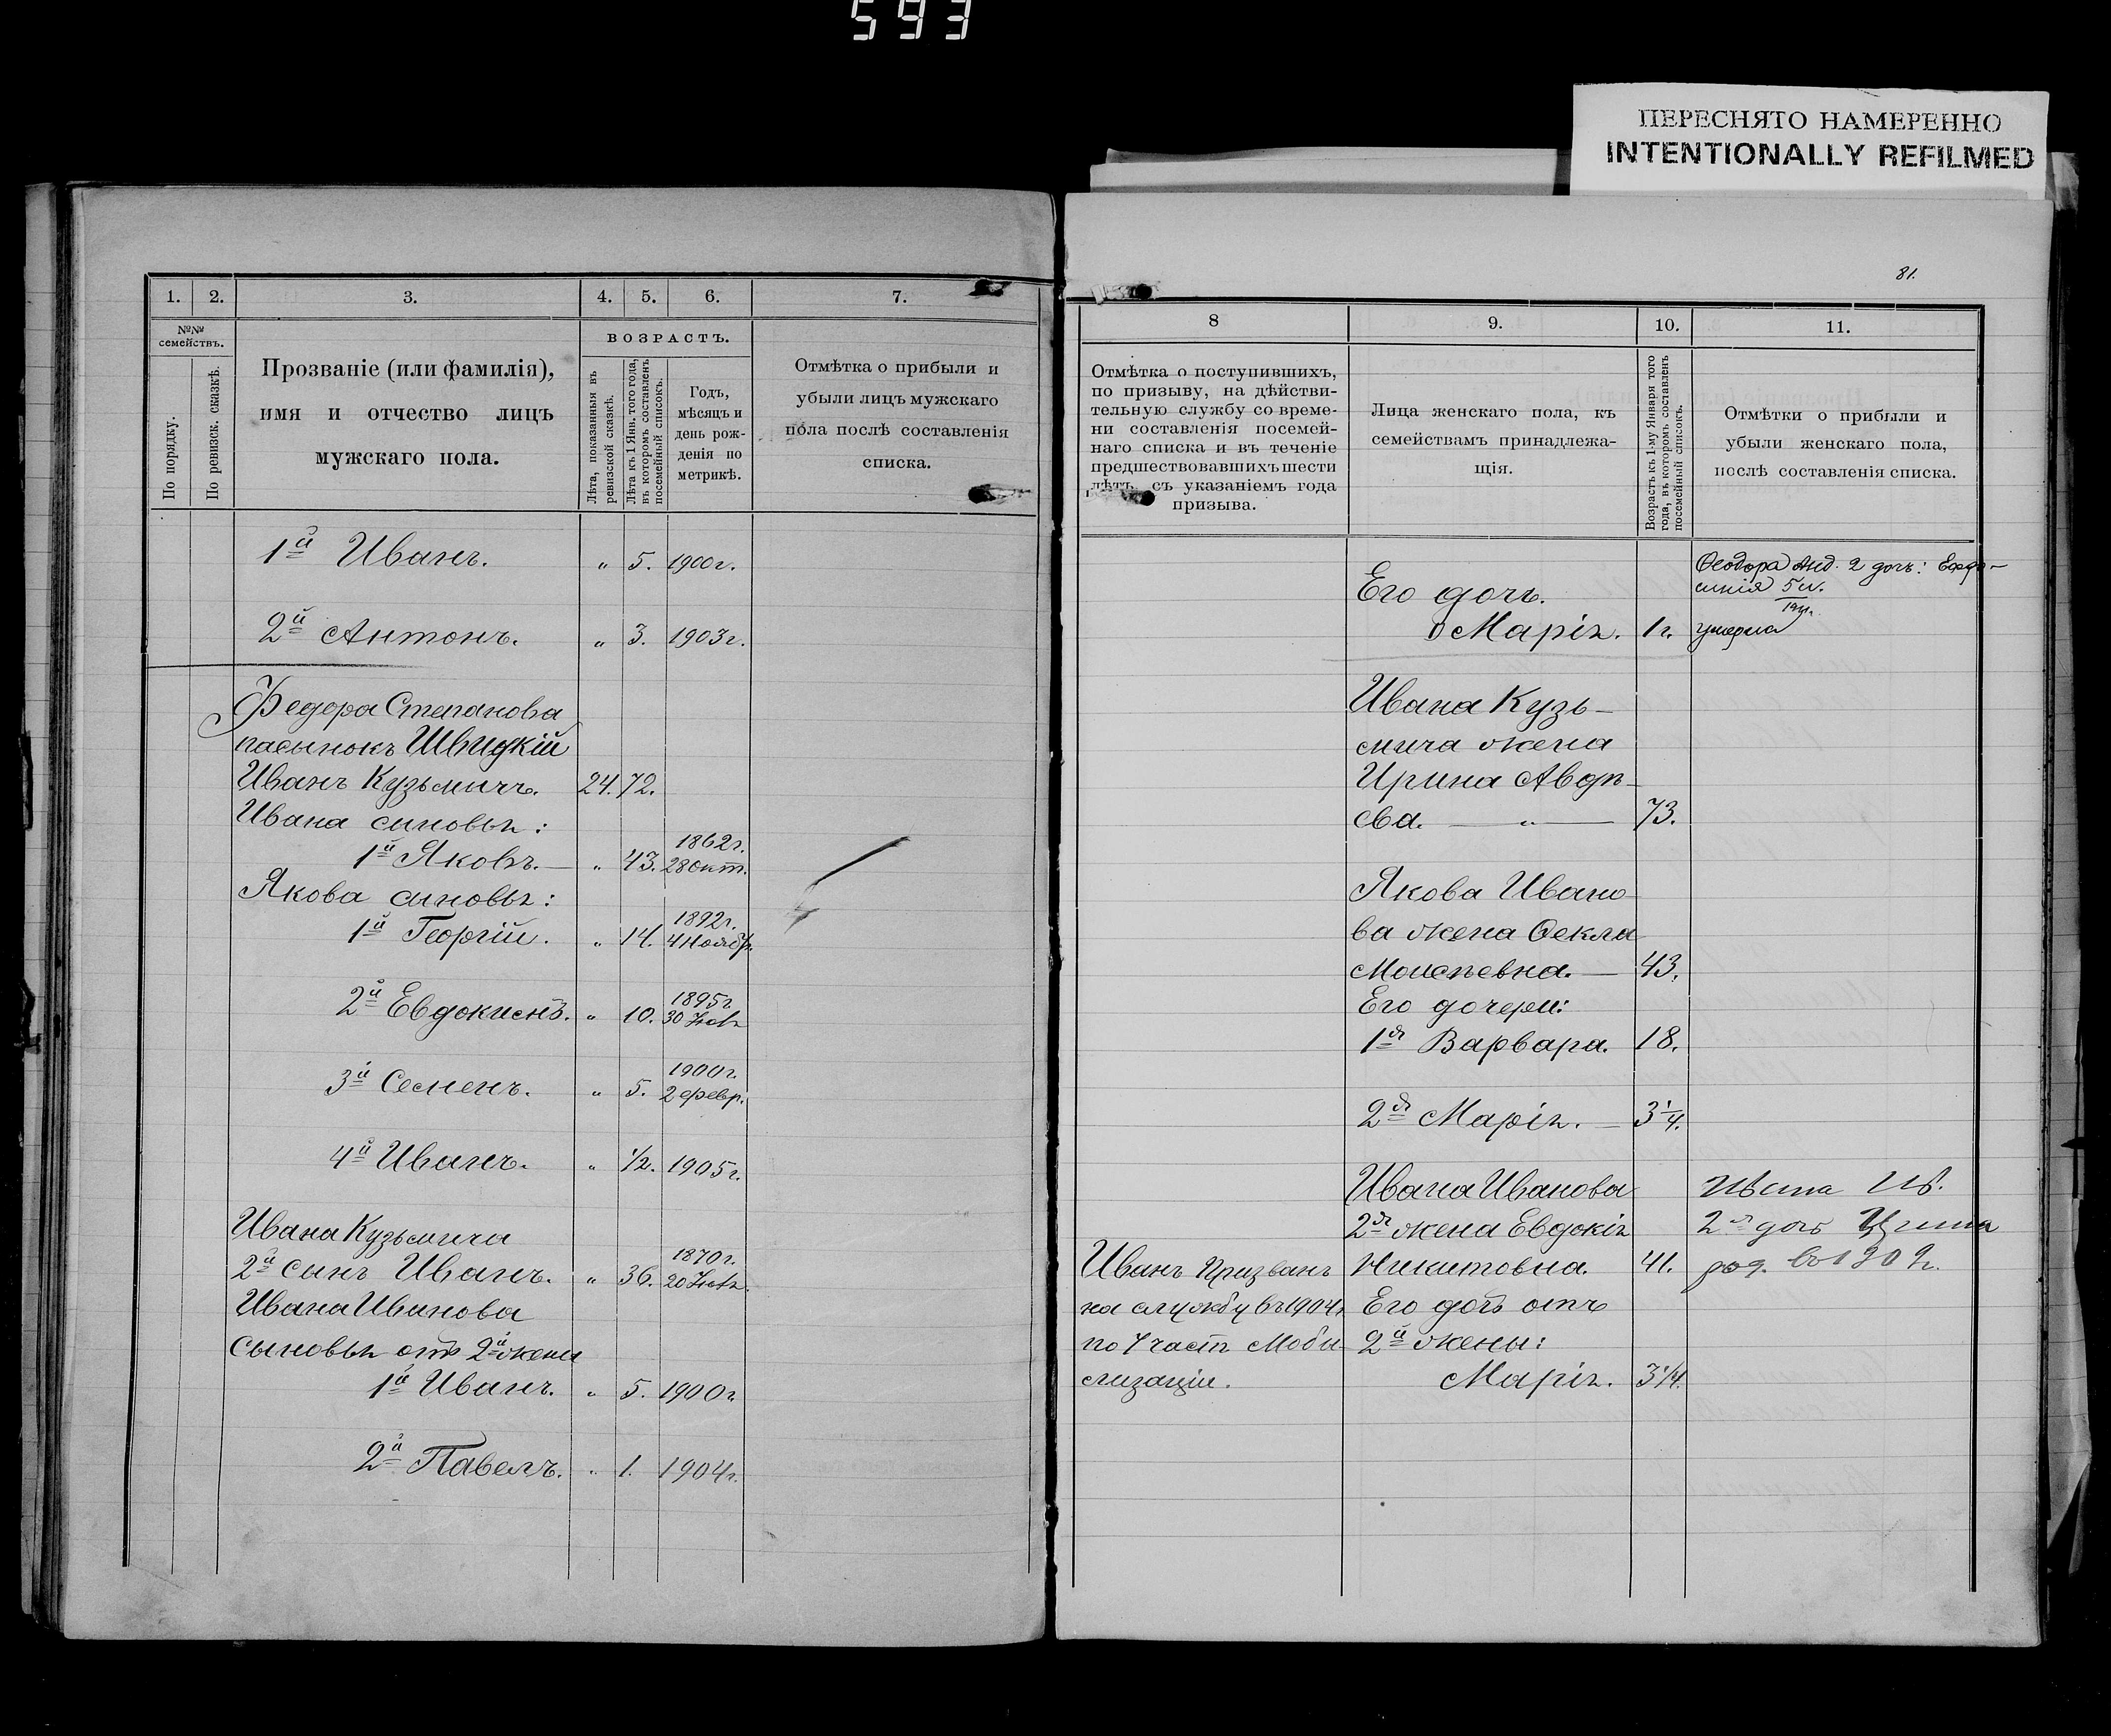 593
ПЕРЕСНЯТО НАМЕРЕННО
INTENTIONALLY REFILMED
1. 2. 3. 4. 5. 6. 7.
№№ семействъ.
По порядку.
По ревизск. сказкѣ.
Прозваніе (или фамилія),
имя и отчество лицъ
мужскаго пола.
ВОЗРАСТЪ.
Лѣта, показанныя въ
ревизской сказкѣ.
Лѣта къ 1 Янв. того года,
въ которомъ составленъ
посемейный списокъ.
Годъ,
мѣсяцъ и
день рож-
денія по
метрикѣ.
Отмѣтка о прибыли и
убыли лицъ мужскаго
пола послѣ составленія
списка.
1й Иванъ. " 5. 1900г.
2й Антонъ. " 3. 1903г.
Федора Степанова
пасынокъ Швидкій
Иванъ Кузьмичъ. 24. 72.
Ивана сыновья:
1й Яковъ. " 43. 1862г. 28 окт.
Якова сыновья:
1й Георгій. " 14. 1892г. 4 Ноябр.
2й Евдокимъ. " 10. 1895г. 30
3й Семенъ. " 5. 1900г. 2 февр.
4й Иванъ. " 1/2. 1905г.
Ивана Кузьмича
2й сынъ Иванъ. " 36. 1870г. 20
Ивана Иванова
сыновья отъ 2й жены
1й Иванъ. " 5. 1900г
2й Павелъ. " 1. 1904г.
81.
8 9. 10. 11.
Отмѣтка о поступившихъ,
по призыву, на дѣйстви-
тельную службу со време-
ни составленія посемей-
наго списка и въ теченіе
предшествовавшихъ шести
лѣтъ, съ указаніемъ года
призыва.
Лица женскаго пола, къ
семействамъ принадлежа-
щія.
Возрастъ къ 1-му Января того
года, въ которомъ составленъ
посемейный списокъ.
Отмѣтки о прибыли и
убыли женскаго пола,
послѣ составленія списка.
Его дочь.
Марія. 1г.
Ѳеодора Анд. 2 дочь: Евфро-
синія 5
умерла
Ивана Кузь-
мича жена
Ирина Авдѣ-
ева. — " — 73.
Якова Ивано-
ва жена Ѳекла
Моисѣевна. — 43.
Его дочери:
1я Варвара. 18.
2я Марія. — 3 1/4.
Ивана Иванова
2я жена Евдокія
Никитовна. 41.
Его дочь отъ
2й жены:
Марія. 3 1/4.
Ивана Ив.
2я дочь
род. въ 190
Иванъ Призванъ
на службу въ 1904г
по Част Моби-
лизаціи.